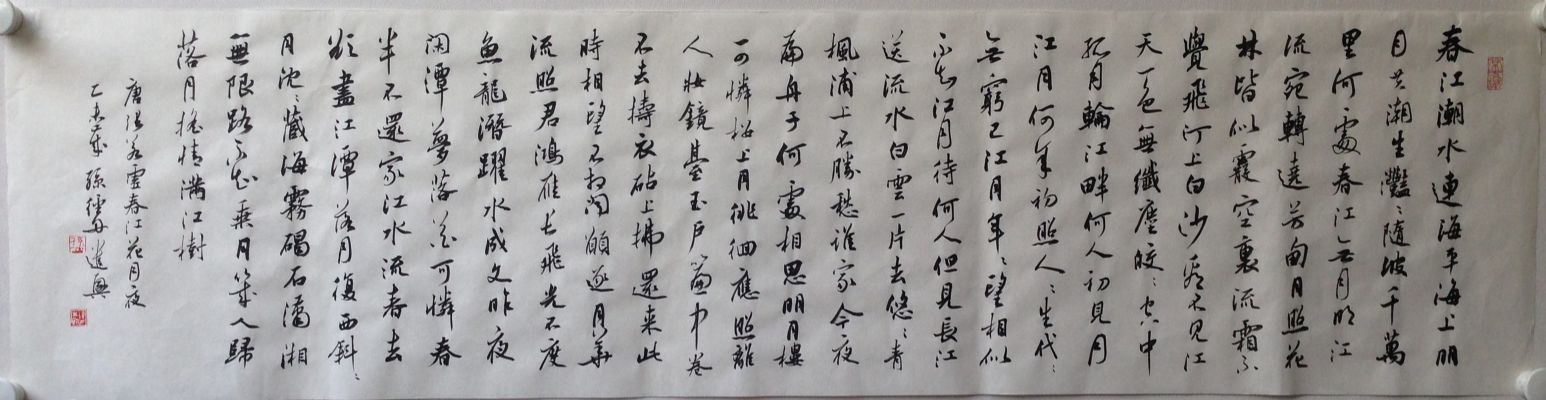 春江潮水連海平海上明
月共潮生灩〻隨波千萬
里何處春江無月明江
流宛轉遶芳甸月照花
林皆似霰空裏流霜不
覺飛汀上白沙看不見江
天一色無纖塵皎〻空中
孤月輪江畔何人初見月
江月何年初照人〻生代〻
無窮已江月年〻望相似
不知江月待何人但見長江
送流水白雲一片去悠〻青
楓浦上不勝愁誰家今夜
扁舟子何處相思明月樓
可憐樓上月徘徊應照離
人妝鏡臺玉戶簾中卷
不去擣衣砧上拂還來此
時相望不相聞願逐月華
流照君鴻雁長飛光不度
魚龍潛躍水成文昨夜
閑潭夢落花可憐春
半不還家江水流春去
欲盡江潭落月復西斜〻
月沈〻藏海霧碣石瀟湘
無限路不知乘月幾人歸
落月搖情滿江樹
唐張若虛春江花月夜
乙未 孫 遣興